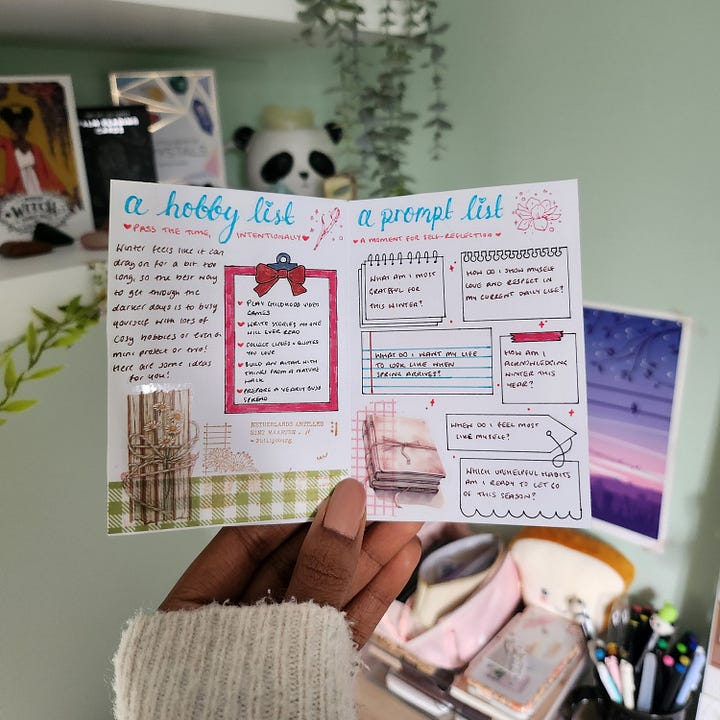 a hobby list
PASS THE TIME, INTENTIONALLY
Winter feels like it can
drag on for a bit too
long, so the best way
to get through the
darker days is to busy
yourself with lots of
cosy hobbies or even a
mini project or two!
Here are some ideas
for you!
PLAY CHILDHOOD VIDEO
GAMES
WRITE STORIES NO ONE
WILL EVER READ
COLLECT LINES + QUOTES
YOU LOVE
BUILD AN ALTAR WITH
THINGS FROM A NATURE
WALK
PREPARE A YEARLY BUJO
SPREAD
NETHERLANDS ANTILLES
SINT MAARTEN
Philipsburg
a prompt list
A MOMENT FOR SELF-REFLECTION
WHAT AM I MOST
GRATEFUL FOR
THIS WINTER?
HOW DO I SHOW MYSELF
LOVE AND RESPECT IN
MY CURRENT DAILY LIFE?
WHAT DO I WANT MY LIFE
TO LOOK LIKE WHEN
SPRING ARRIVES?
HOW AM I
ACKNOWLEDGING
WINTER THIS
YEAR?
WHEN DO I FEEL MOST
LIKE MYSELF?
WHICH UNHELPFUL HABITS
AM I READY TO LET GO
OF THIS SEASON?
WITCH
PALM READING
CARDS
CRYSTALS